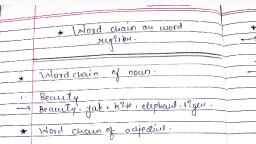 * Word chain on word
register.
* Word chain of noun.
1. Beauty
→ Beauty, yak, kite, elephant, tiger.
* Word chain of adjective.